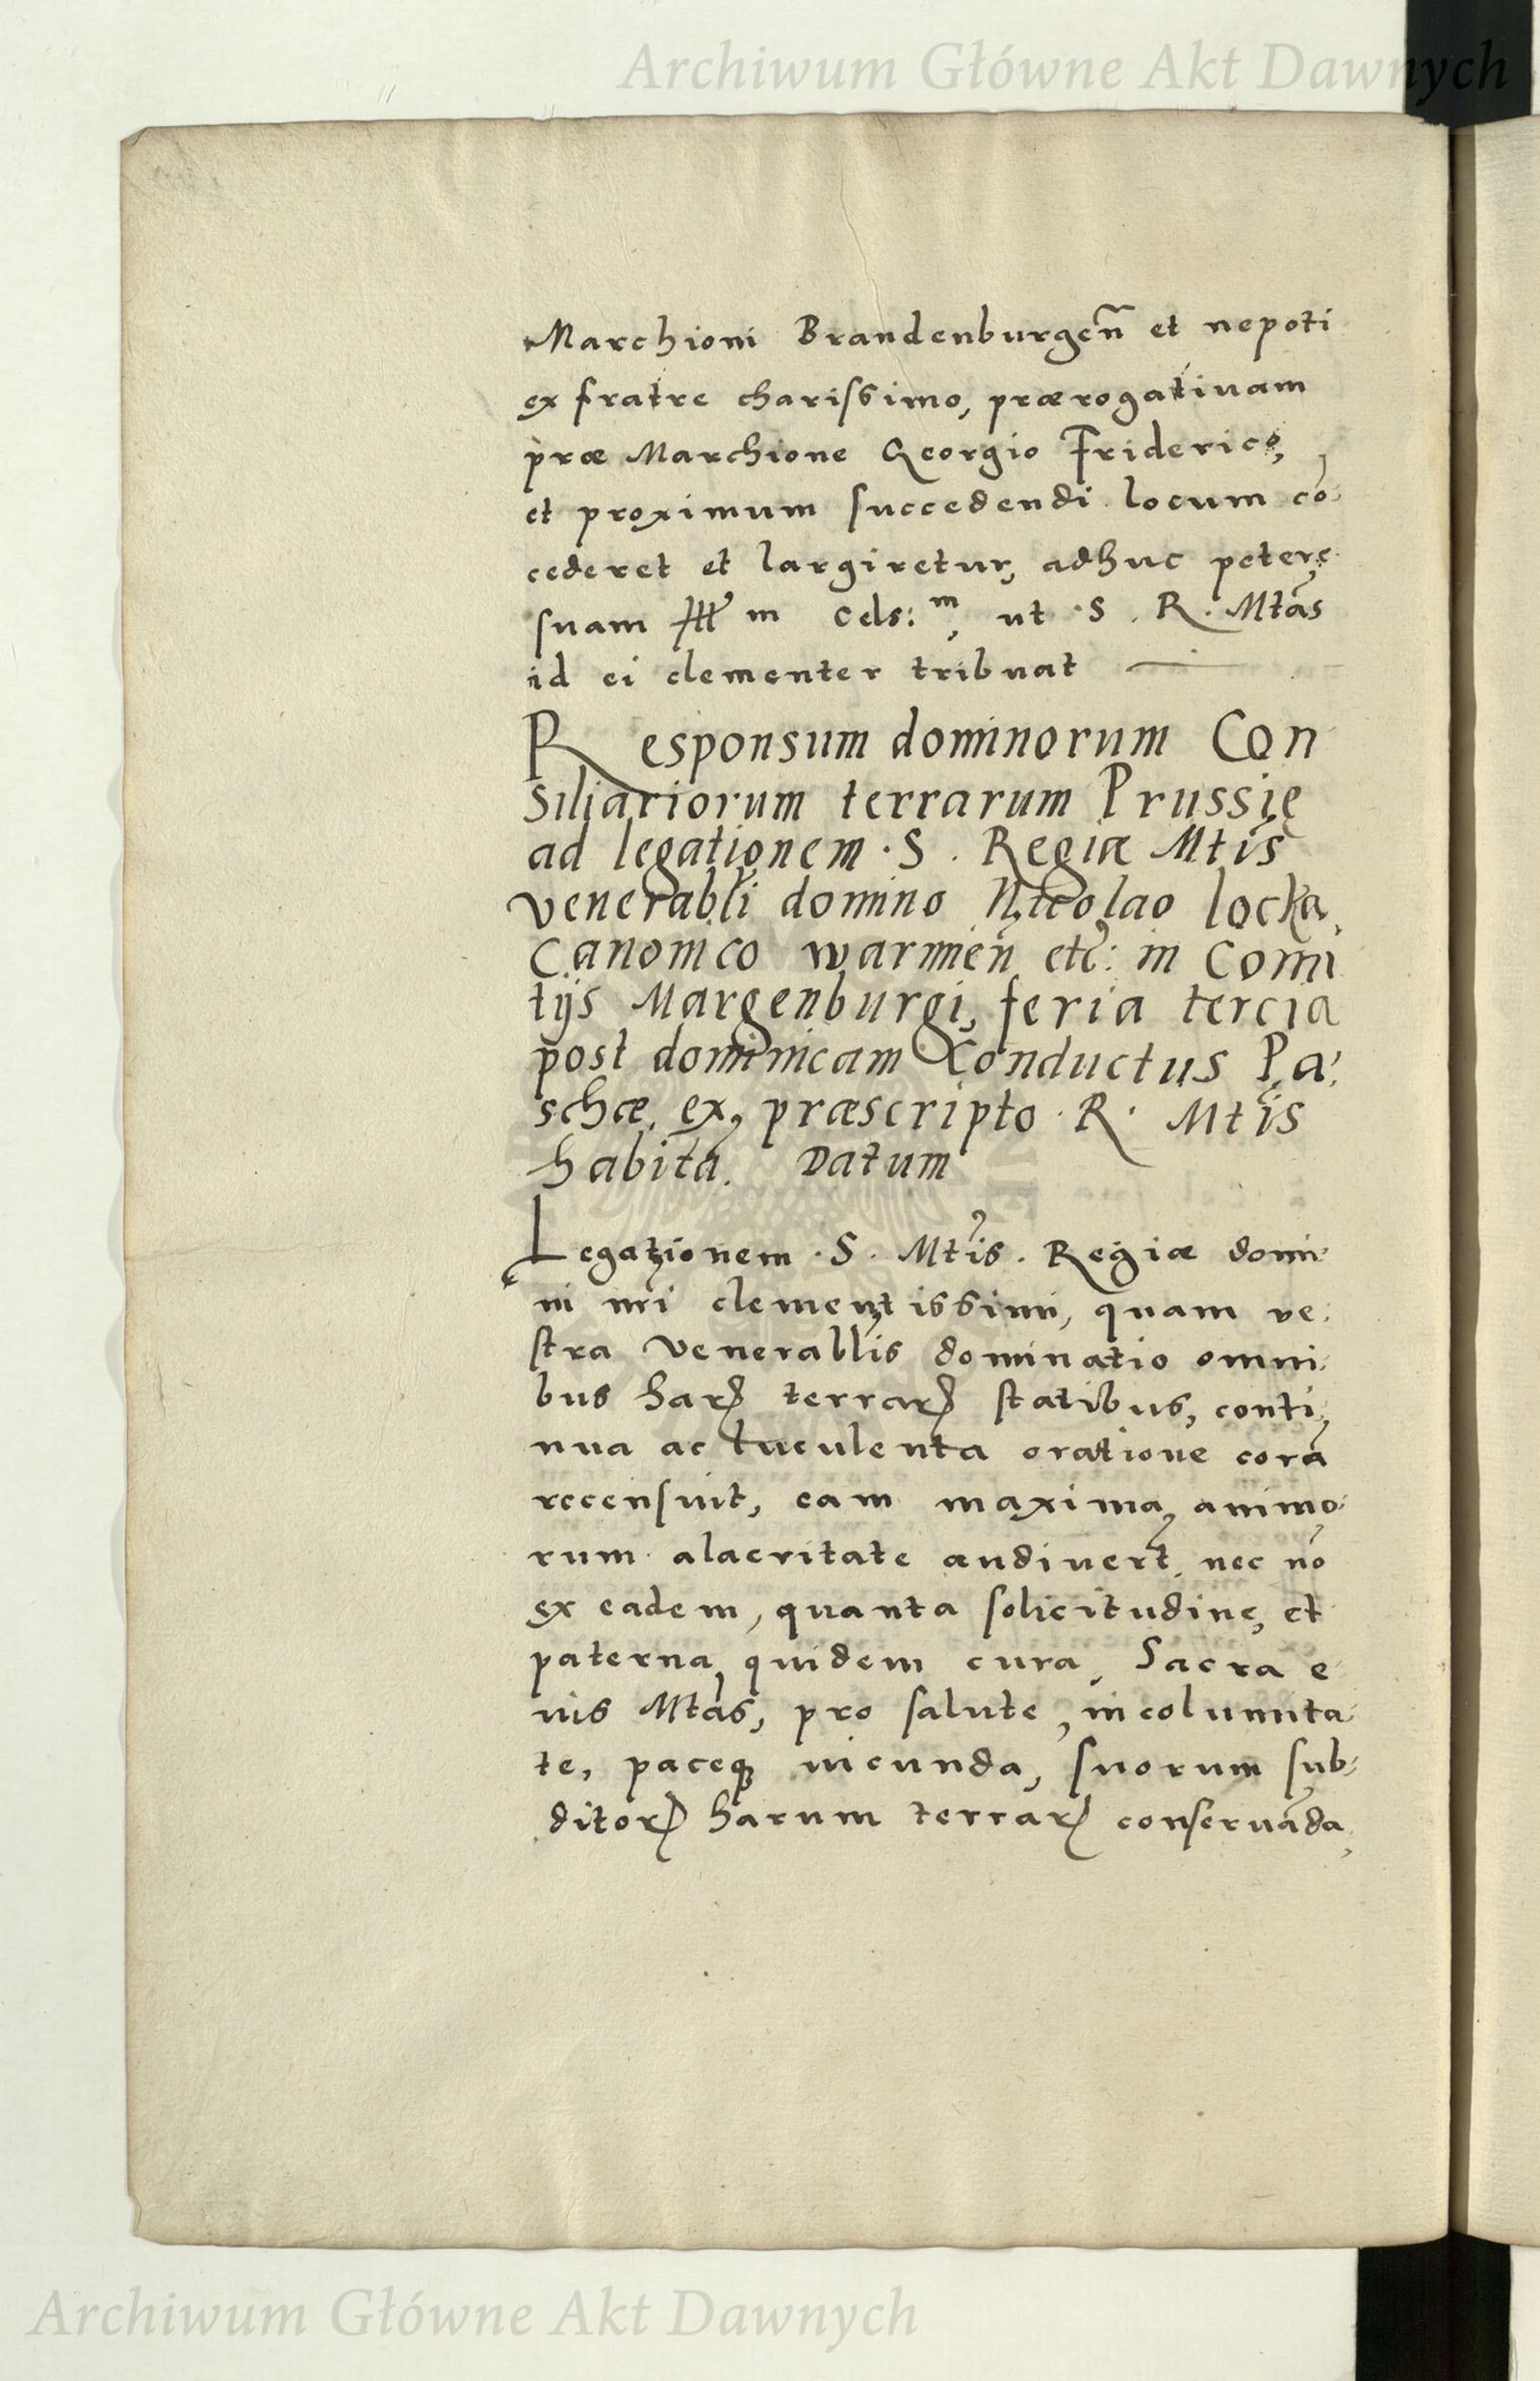 Archiwum Główne Akt Dawnych
Marchioni Brandenburgen̄ et nepoti
ex fratre charissimo, prærogatiuam
præ Marchione Georgio Friderico,
et proximum succedendi locum cō
cederet et largiretur, adhuc petere
suam Ill m Cels: m, ut S. R. Mtas
id ei clementer tribuat
Responsum dominorum Con
siliariorum terrarum Prussię
ad legationem S. Regiæ Mtis
venerabli domino Nicolao locka
Canonico warmien etc: in Comi
tijs Margenburgi, feria tercia
post dominicam Conductus Pa:
schæ ex præscripto R. Mtis
habita. Datum
Legationem S. Mtis. Regiæ domi:
ni nri clementissimi, quam ve:
stra venerablis dominatio omni:
bus harꝝ terrarꝝ statibus, conti,
nua ac luculenta oratione corā
recensuit, eam maxima animo:
rum alacritate audiuert nec nō
ex eadem, quanta solicitudine, et
paterna quidem cura, Sacra e
ius Mtas, pro salute, incolumita:
te, paceqꝫ iucunda, suorum sub:
ditorꝝ harum terrarꝝ conseruāda,
Archiwum Główne Akt Dawnych